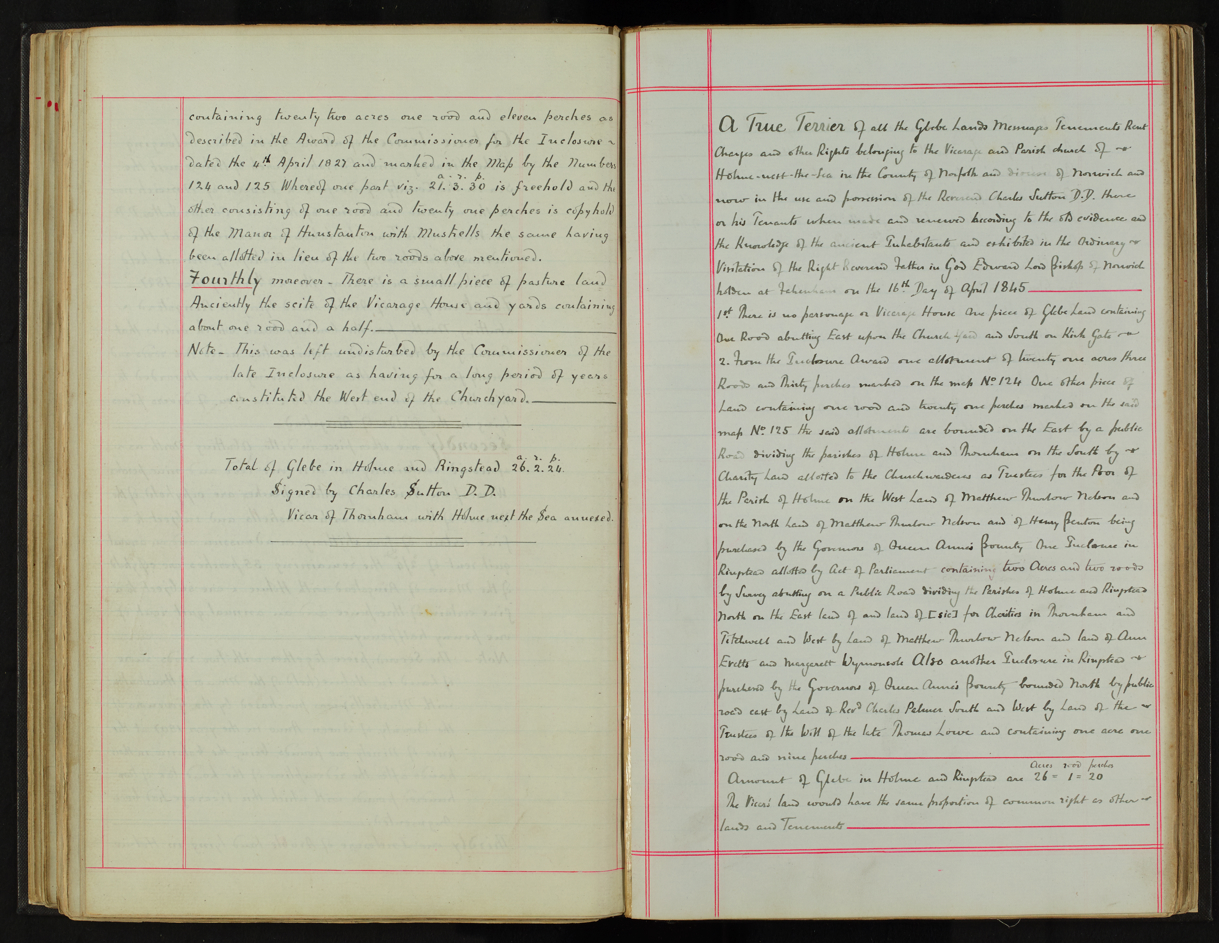 containing twenty two acres one rood and eleven perches as
described in the Award of the Commissioner for the Inclosure
dated the 4th April 1827 and marked in the Map by the Numbers
124 and 125 Whereof one part viz. 21.a. 3.r. 30 p. is freehold and the
other consisting of one rood and twenty one perches is copyhold
of the Manor of Hunstanton with Mustrells the same having
been allotted in lieu of the two roods above mentioned.
Fourthly moreover - There is a small piece of pasture land
Anciently the scite of the Vicarage House and yards containing
about one rood and a half.
Note - This was left undisturbed by the Commissioner of the
late Inclosure as having for a long period of years
constituted the West end of the Churchyard.
Total of Glebe in Holme and Ringstead 26.a. 2.r. 24.p.
Signed by Charles Sutton D.D.
Vicar of Thornham with Holme next the Sea annexed.
A True Terrier of all the Glebe Lands Messuages Tenements Rent
Charges and other Rights belonging to the Vicarage and Parish church of
Holme-next-the-Sea in the County of Norfolk and diocese of Norwich and
now in the use and possession of the Reverend Charles Sutton D.D. there
or his Tenants when made and renewed according to the old evidence and
the Knowledge of the ancient Inhabitants and exhibited in the Ordinary
Visitation of the Right Reverend Father in God Edward Lord Bishop of Norwich
holden at Fakenham on the 16th Day of April 1845
1st There is no parsonage or Vicarage House One piece of Glebe Land containing
One Rood abutting East upon the Church Yard and South on Kirk Gate
2. From the Inclosure Award one allotment of twenty one acres three
Roods and Thirty perches marked on the map No 124 One other piece of
Land containing one rood and twenty one perches marked on the said
map No 125 the said allotments are bounded on the East by a public
Road dividing the parishes of Holme and Thornham on the South by
Charity Land allotted to the Churchwardens as Trustees for the Poor of
the Parish of Holme on the West Land of Matthew Thurlow Nelson and
on the North Land of Matthew Thurlow Nelson and of Henry Benton being
purchased by the Governors of Queen Anne's Bounty One Inclosure in
Ringstead allotted by Act of Parliament containing two Acres and two roods
by Survey abutting on a Public Road dividing the Parishes of Holme and Ringstead
North on the East land of and land of [sic] for Charities in Thornham and
Titchwell and West by Land of Matthew Thurlow Nelson and land of Ann
Evetts and Margarett Wymonsole Also another Inclosure in Ringstead
purchased by the Governors of Queen Anne's Bounty bounded North by public
road east by Land of Revd Charles Palmer South and West by Land of the
Trustees of the Will of the late Thomas Lowe and containing one acre one
rood and nine perches
Amount of Glebe in Holme and Ringstead are Acres 26 = rood 1 = perches 20
The Vicars land would have the same proportion of common right as other
lands and Tenements